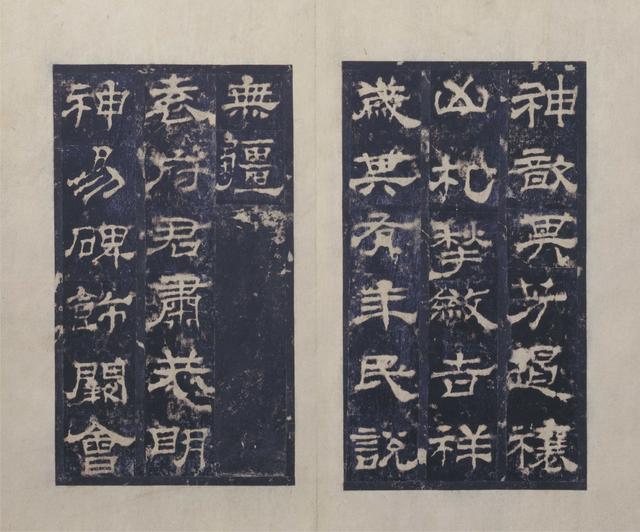 神歆其芳遏禳
凶札揫斂吉祥
歲其有年民說
無疆
袁府君肅恭朙
神易碑飾闕會